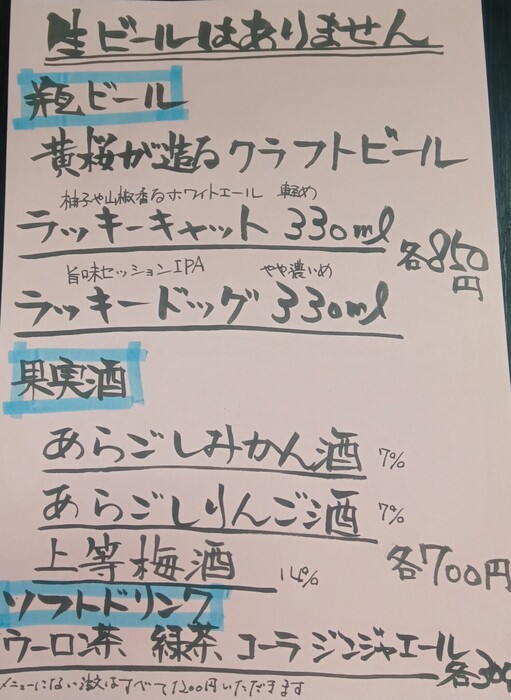 生ビールはありません
瓶ビール
黄桜が造るクラフトビール
柚子や山椒香るホワイトエール 軽め
ラッキーキャット 330ml
各850円
旨味セッションIPA やや濃いめ
ラッキードッグ 330ml
果実酒
あらごしみかん酒 7%
あらごしりんご酒 7%
上等梅酒 14%
各700円
ソフトドリンク
ウーロン茶 緑茶 コーラ ジンジャエール
各300
メニューにない注文はすべて1200円いただきます